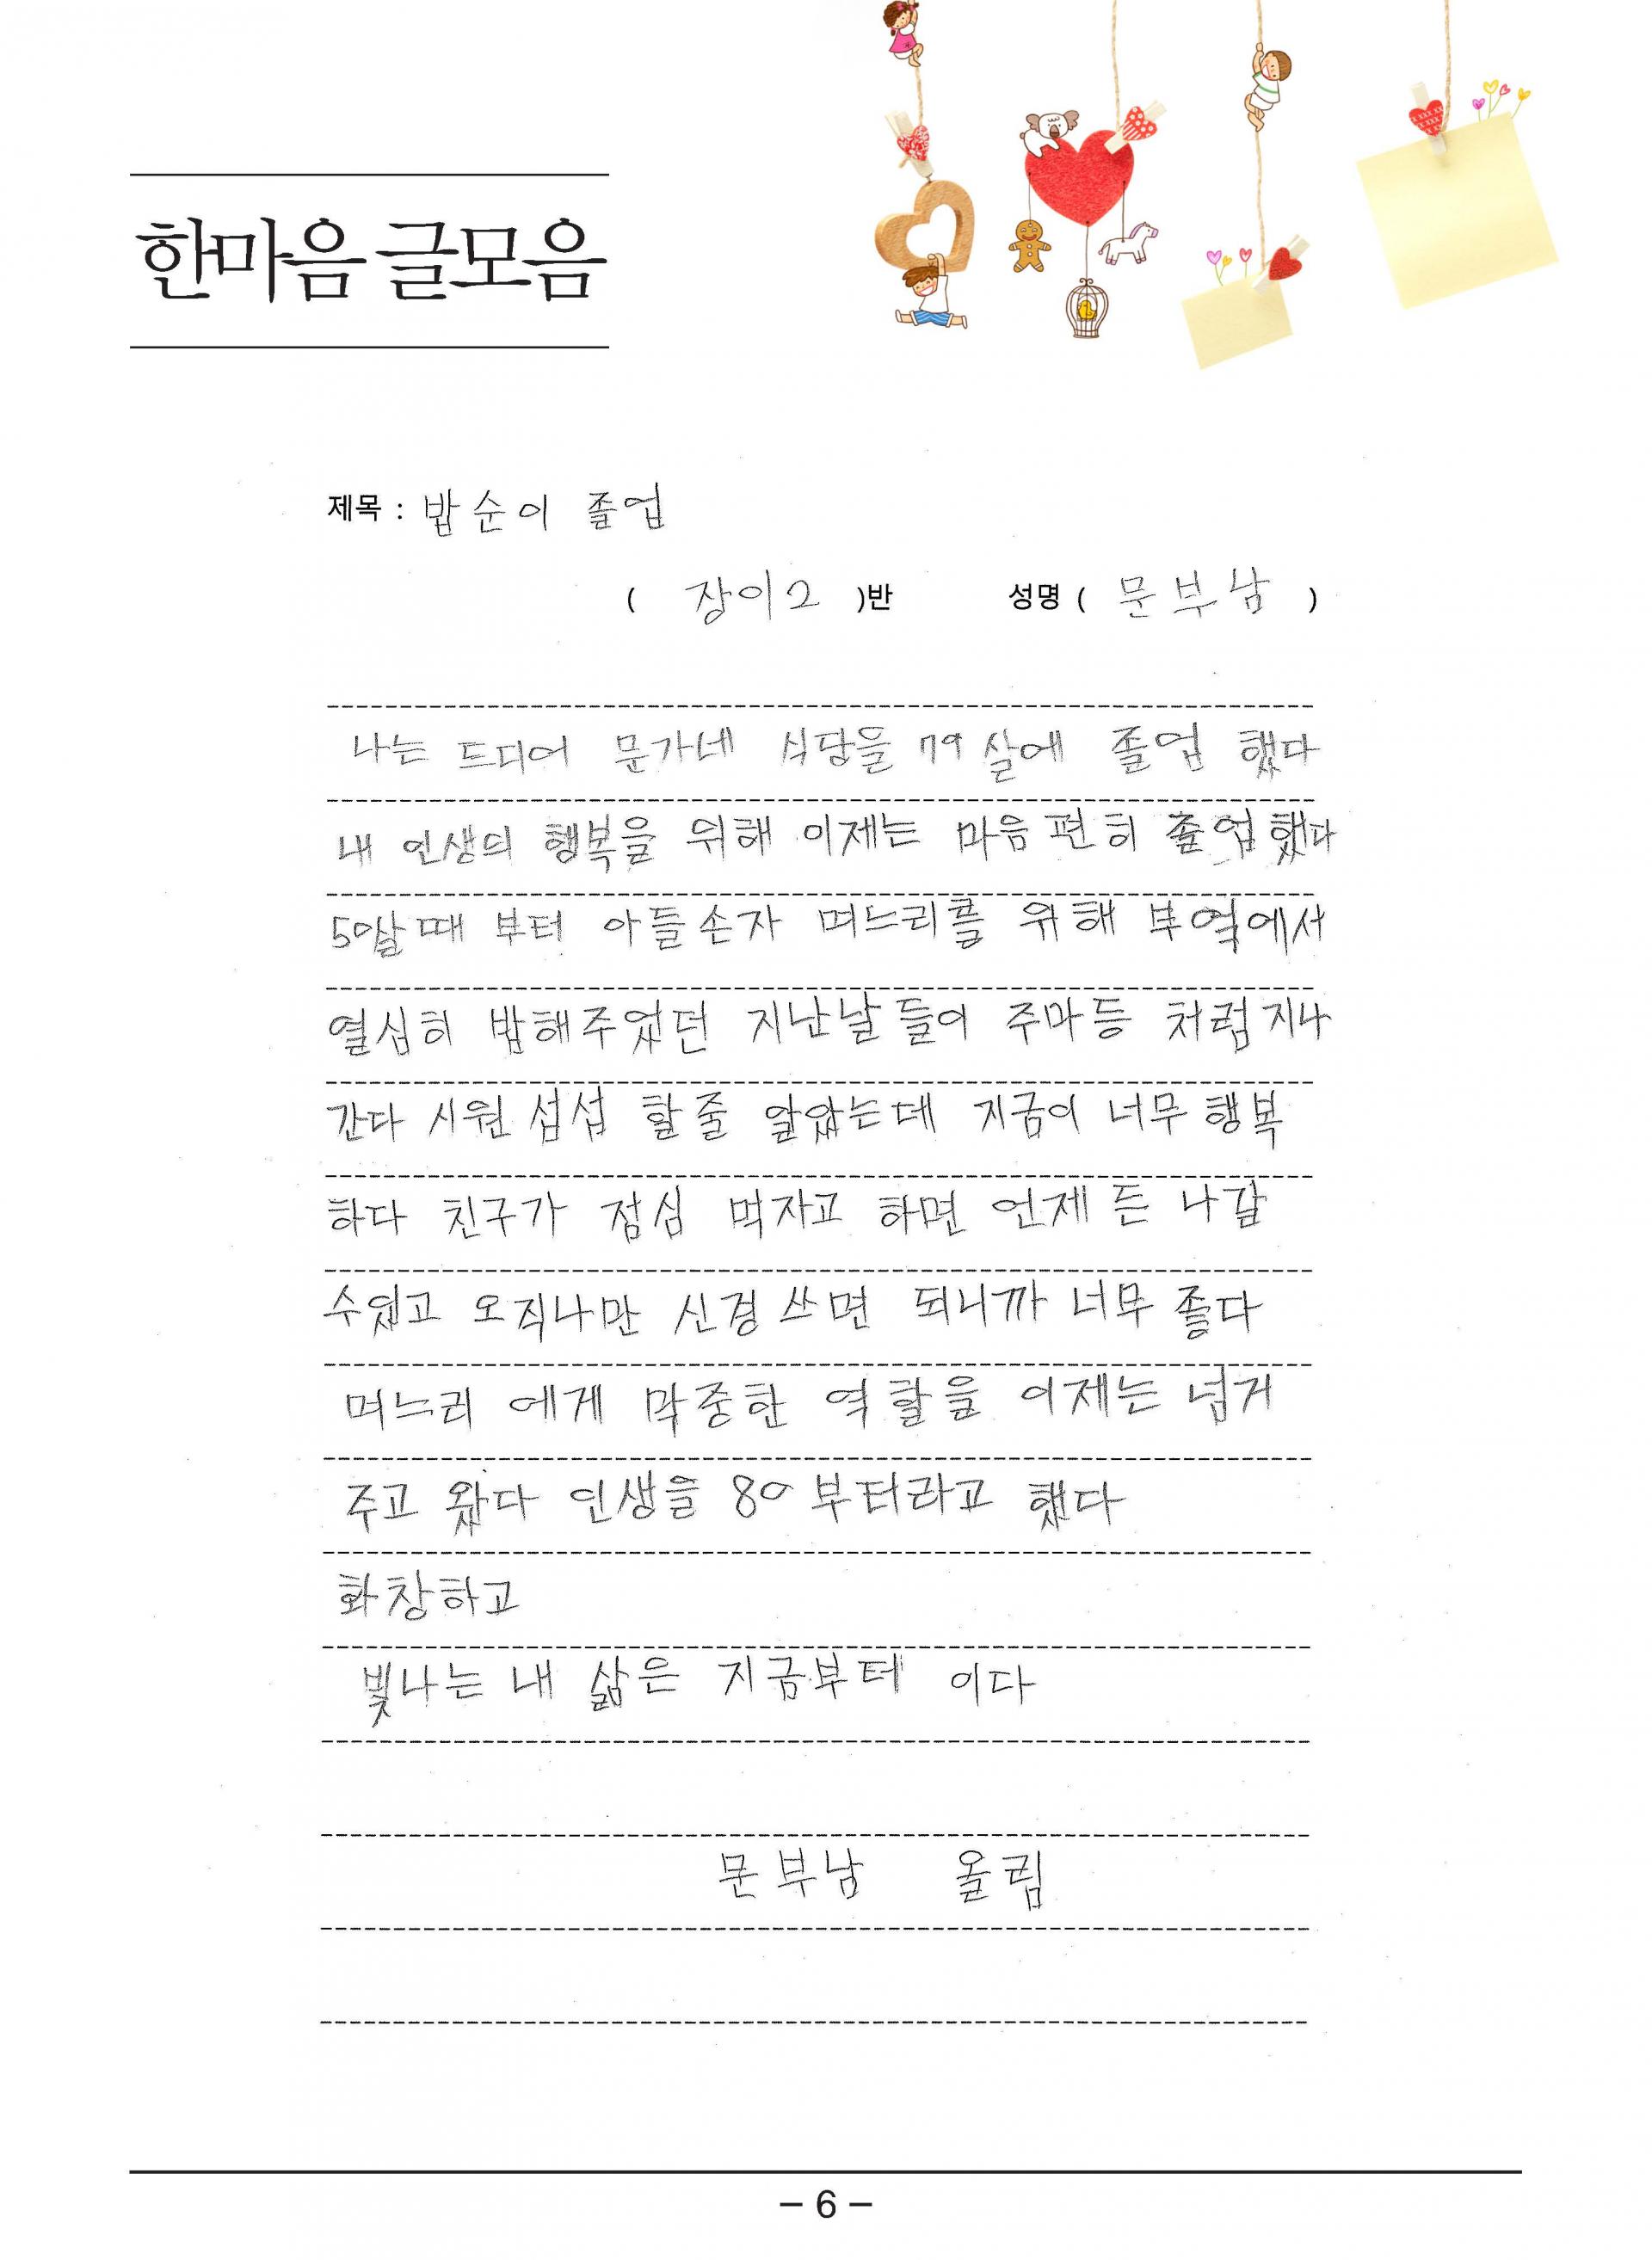 한마음 글모음
제목 : 밥순이 졸업
( 장이2 )반 성명 ( 문부남 )
나는 드디어 문가네 식당을 79살에 졸업 했다
내 인생의 행복을 위해 이제는 마음 편히 졸업했다
50살때 부터 아들손자 며느리를 위해 부엌에서
열심히 밥해주었던 지난날들이 주마등 처럼지나
간다 시원섭섭 할줄 알았는데 지금이 너무 행복
하다 친구가 점심 먹자고 하면 언제든 나갈
수있고 오직나만 신경쓰면 되니까 너무 좋다
며느리 에게 막중한 역활을 이제는 넘겨
주고 왔다 인생을 80부터라고 했다
화창하고
빛나는 내 삶은 지금부터 이다
문부남 올림
– 6 –